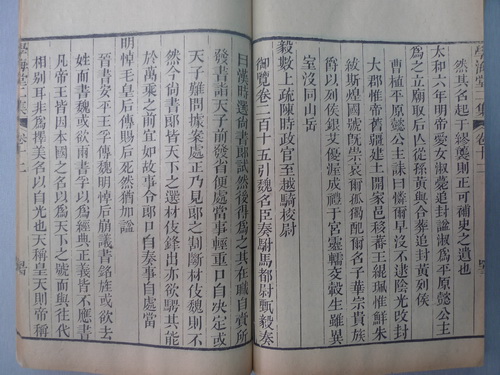 然其名起于繆襲則正可補史之遺也
太和六年明帝愛女淑薨追封諡淑爲平原懿公主
爲之立廟取后亾從孫黃與合葬追封黃列侯
曹植平原懿公主誄曰憯爾早沒不逮陰光改封
大郡惟帝舊疆建土開家邑移蕃王緄珮惟鮮朱
紱斯煌國號旣崇哀爾孤獨配爾名子華宗貴族
爵以列侯銀艾優渥成禮于宮靈轜交轂生雖異
室沒同山岳
毅數上疏陳時政官至越騎校尉
御覽卷二百十五引魏名臣奏駙馬都尉甄毅奏
曰漢時選尙書郎試然後得爲之其在職自賫所
發書詣天子前發省便處當事輕重口自决定或
天子難問據案處正乃見郎之割斷材伎魏則不
然今尙書郎皆天下之選材伎鋒出亦欲騁其能
於萬乘之前宜如故事令郎口自奏事自處當
明悼毛皇后傳賜后死然猶加諡
晉書安平王孚傳魏明悼后崩議書銘旌或欲去
姓而書魏或欲兩書孚以爲經典正義皆不應書
凡帝王皆因本國之名以爲天下之號而與往代
相别耳非爲擇美名以自光也天稱皇天則帝稱
學海堂二集 卷十二